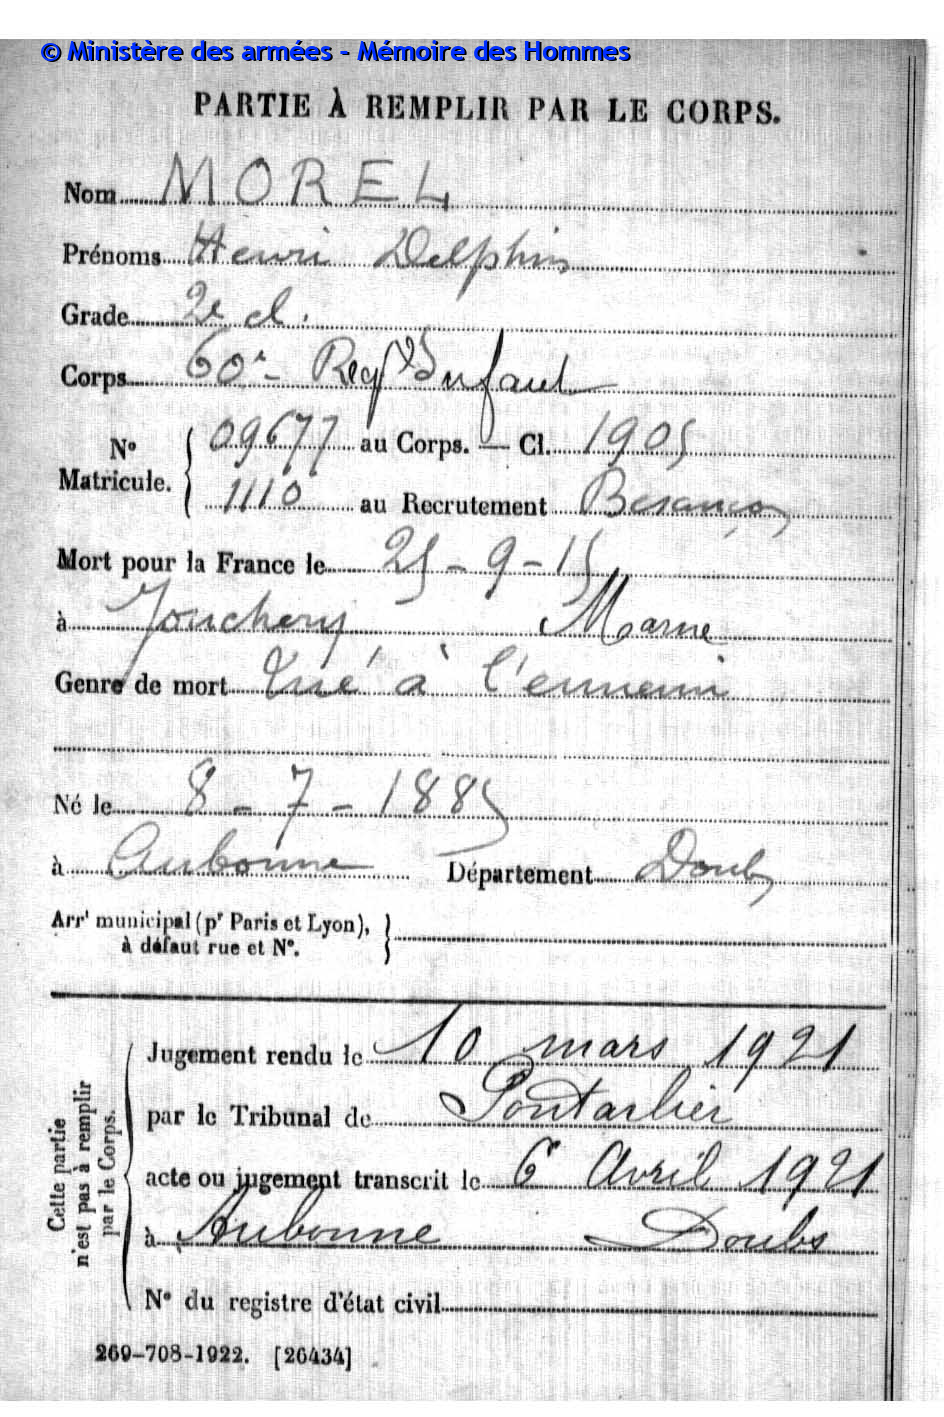 © Ministère des armées - Mémoire des Hommes
PARTIE À REMPLIR PAR LE CORPS.
Nom MOREL
Prénoms Henri Delphin
Grade 2e cl.
Corps 60e Regt d'Infant
N° Matricule. { 09677 au Corps. — Cl. 1905
1110 au Recrutement Besançon
Mort pour la France le 25-9-15
à Jouchery Marne
Genre de mort Tué à l'ennemi
Né le 8-7-1885
à Aubonne Département Doubs
Arrt municipal (pr Paris et Lyon), }
à défaut rue et N°.
Cette partie n'est pas à remplir par le Corps.
Jugement rendu le 10 mars 1921
par le Tribunal de Pontarlier
acte ou jugement transcrit le 6 Avril 1921
à Aubonne Doubs
N° du registre d'état civil
269-708-1922. [26434]